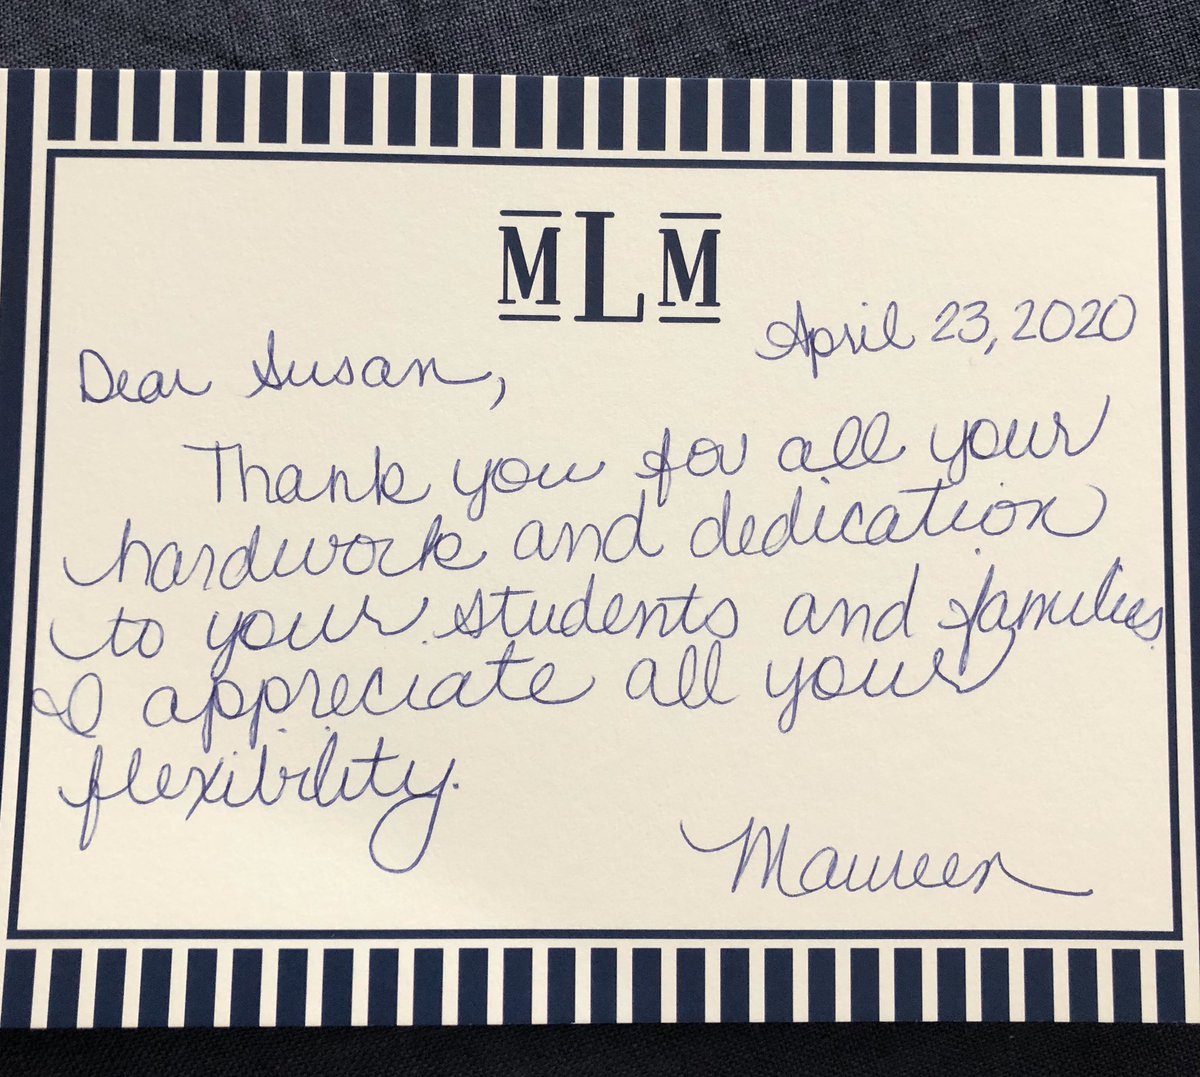 MLM
April 23, 2020
Dear Susan,
Thank you for all your
hardwork and dedication
to your students and families
I appreciate all your
flexibility.
Maureen